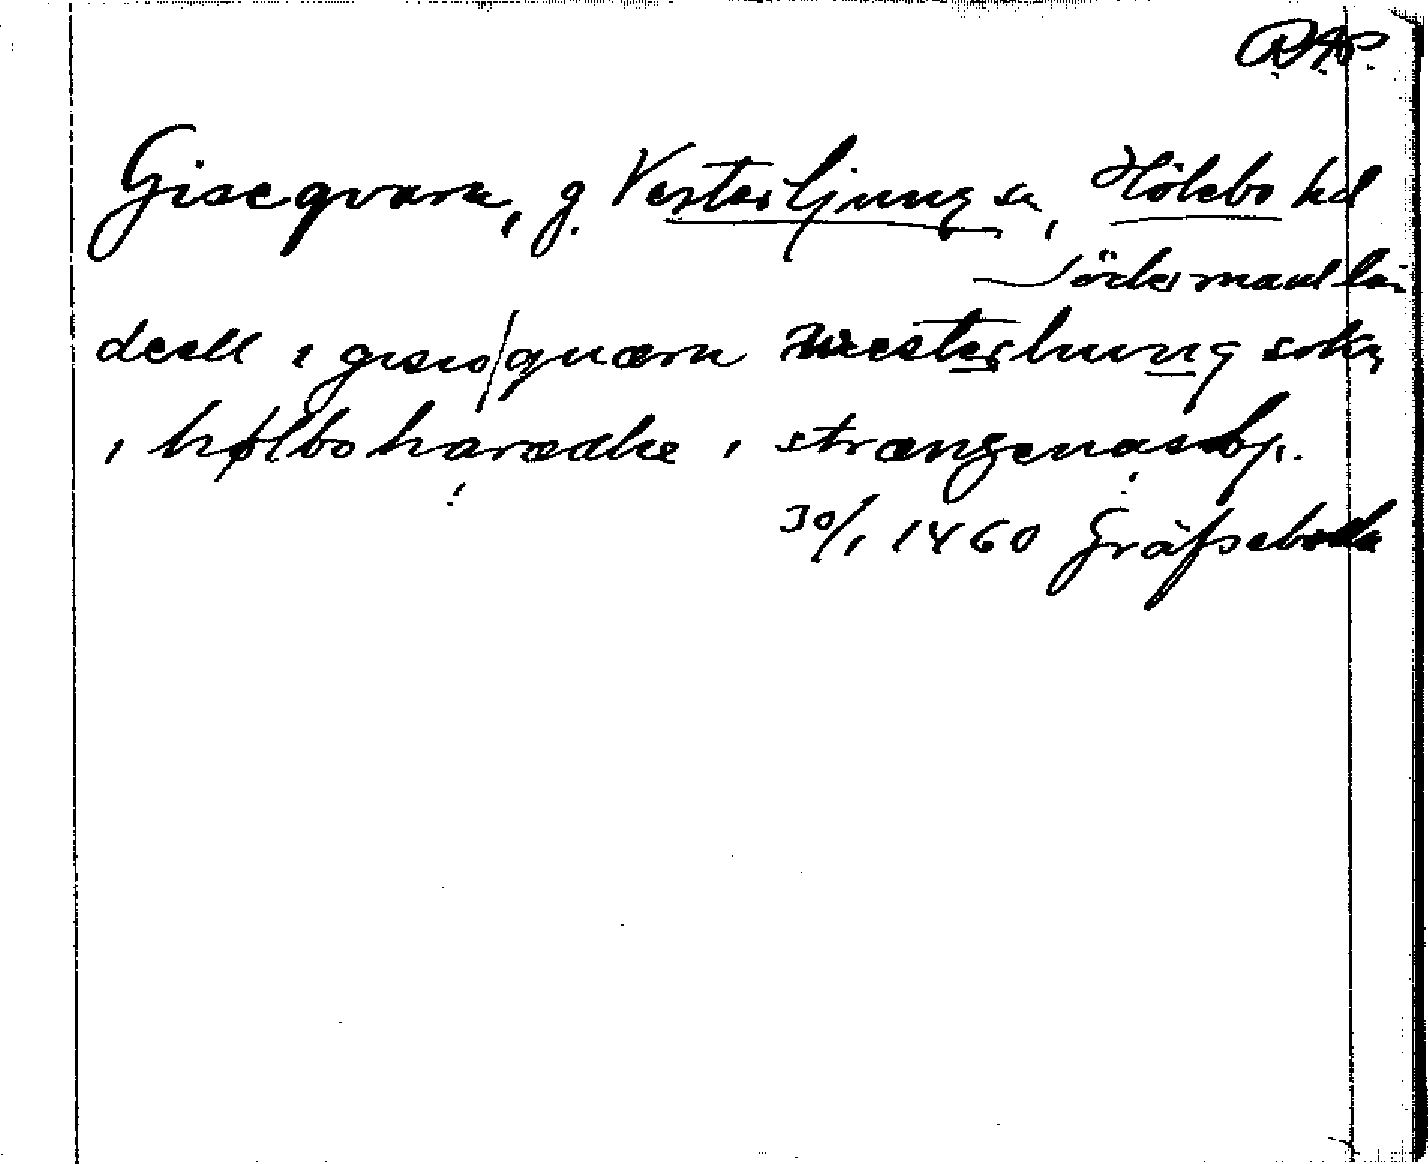 RAP.
Giseqvarn, g. Vesterljung sn, Hölebo hd
Södermanl län
deell i giseo/quærn westerliung sokn
i hølbo harædhe i strængenæs bp.
30/1 1460 Gräfsebodha